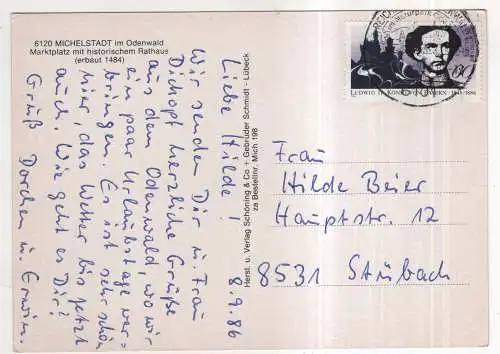 6120 MICHELSTADT im Odenwald
Marktplatz mit historischem Rathaus
(erbaut 1484)
8.9.86
Liebe Hilde!
Wir senden Dir u. Frau
Dickopf herzliche Grüße
aus dem Odenwald, wo wir
ein paar Urlaubstage ver-
bringen. Es ist sehr schön
hier, das Wetter bis jetzt
auch. Wie geht es Dir?
Gruß Dorchen u. Erwin.
Herst. u. Verlag Schöning & Co · Gebrüder Schmidt - Lübeck
za Bestellnr. Mich 198
LUDWIG II. KÖNIG VON BAYERN 1845-1886
Frau
Hilde Beier
Hauptstr. 12
8531 Stübach